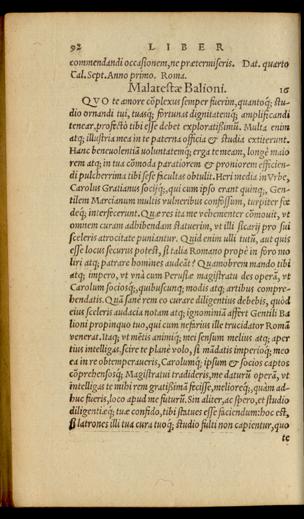 92 LIBER
commendandi occasionem, ne prætermiseris. Dat. quarto
Cal. Sept. Anno primo. Roma.
Malatestæ Balioni. 16
QVO te amore cōplexus semper fuerim, quantoq́; stu-
dio ornandi tui, tuasq́; fortunas dignitatemq́; amplificandi
tenear, profectò tibi esse debet exploratissimū. Multa enim
atq; illustria mea in te paterna officia & studia extiterunt.
Hanc beneuolentiā voluntatemq́; erga te meam, longè maio
rem atq; in tua cōmoda paratiorem & proniorem efficien-
di pulcherrima tibi sese facultas obtulit. Heri media in Vrbe,
Carolus Gratianus socijq́;, qui cum ipso erant quinq;, Gen-
tilem Marcianum multis vulneribus confossum, turpiter fœ
deq́; interfecerunt. Quæ res ita me vehementer cōmouit, vt
omnem curam adhibendam statuerim, vt illi sicarij pro sui
sceleris atrocitate puniantur. Quid enim ulli tutū, aut quis
esse locus securus potest, si Italia Romano propè in foro mo
liri atq; patrare homines audēt? Quamobrem mando tibi
atq; impero, vt vnà cum Perusiæ magistratu des operā, vt
Carolum sociosq́;, quibuscunq; modis atq; artibus compre-
hendatis. Quā sanè rem eo curare diligentius debebis, quòd
eius sceleris audacia notam atq; ignominiā affert Gentili Ba
lioni propinquo tuo, qui cum nefarius ille trucidator Romā
venerat. Itaq; vt mētis animiq́; mei sensum melius atq; aper
tius intelligas, scire te planè volo, si mādatis imperioq́; meo
ea in re obtemperaueris, Carolumq́; ipsum & socios captos
cōprehensosq́; Magistratui tradideris, me daturū operā, vt
intelligas te mihi rem gratissimā fecisse, melioreq́;, quàm ad-
huc fueris, loco apud me futurū. Sin aliter, ac spero, et studio
diligentiæq́; tuæ confido, tibi statues esse faciendum: hoc est,
si latrones illi tua cura tuoq́; studio fulti non capientur, quo
te